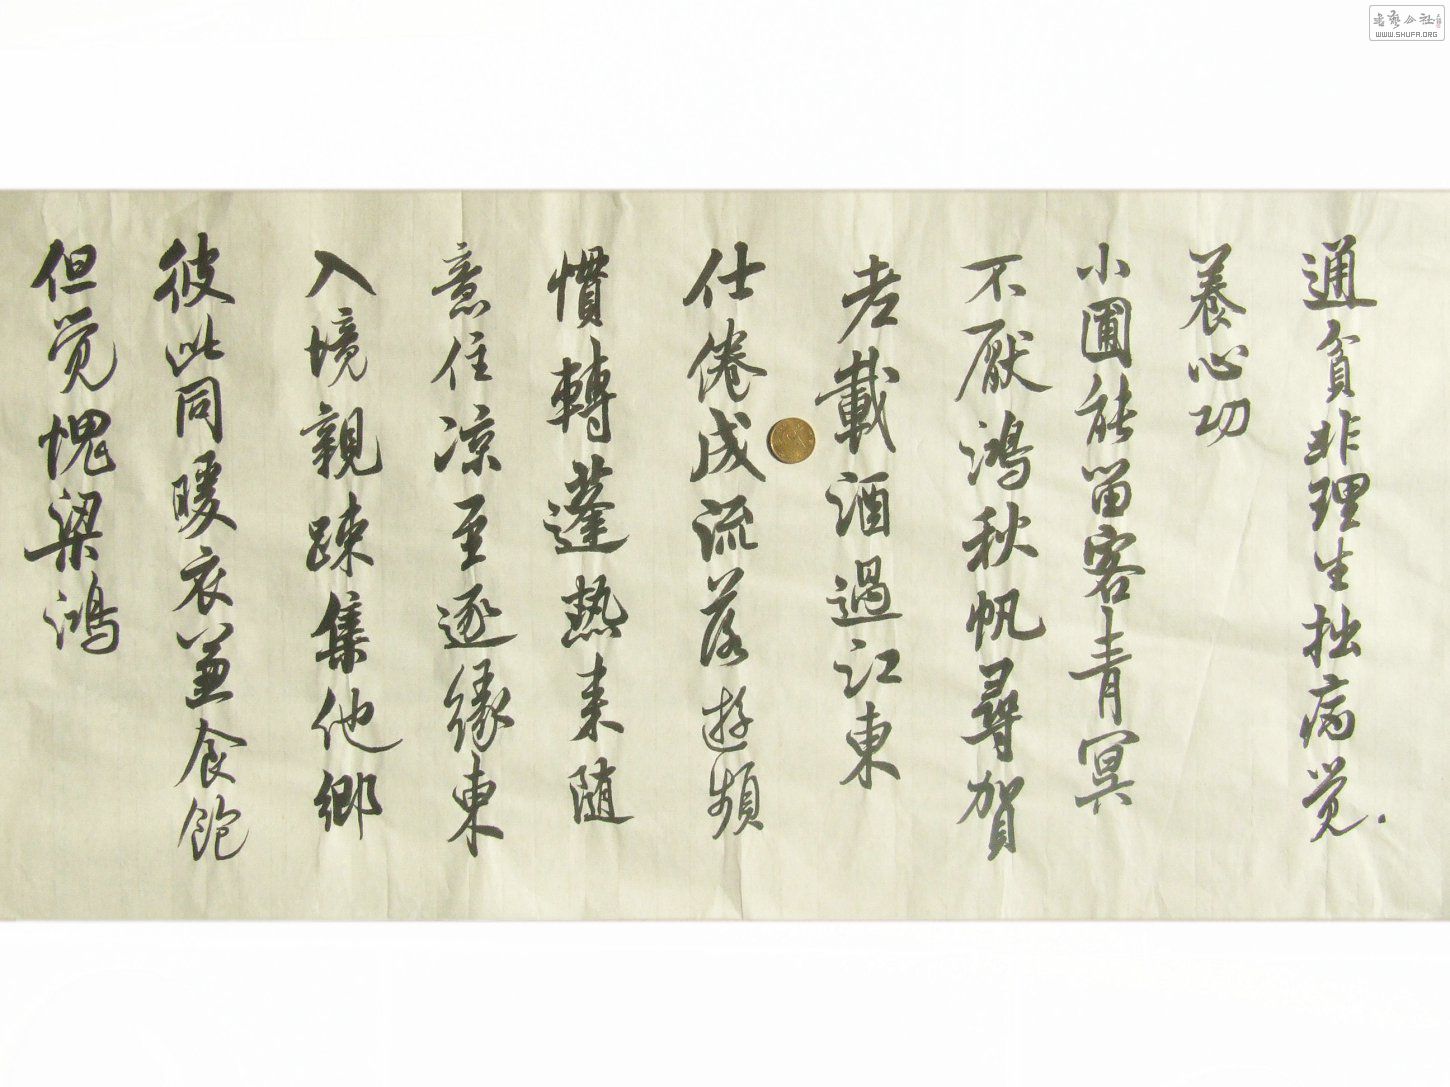 通貧非理生拙病觉
養心功
小圃能留客青冥
不厭鴻秋帆尋賀
老載酒過江東
仕倦成流落遊頻
慣轉蓬熱来随
意住凉至逐緣東
入境親踈集他鄉
彼此同暖衣兼食飽
但觉愧梁鴻
WWW.SHUFA.ORG